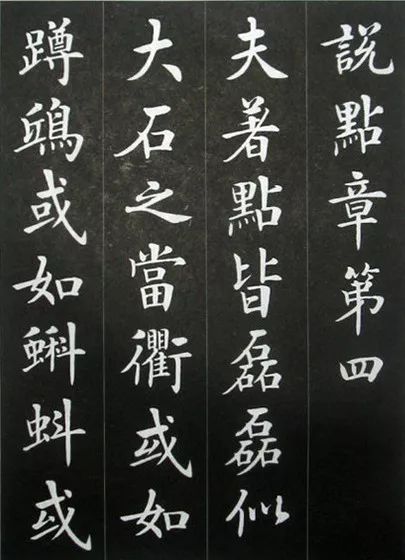 說點章第四
夫著點皆磊磊似
大石之當衢或如
蹲鴟或如蝌蚪或